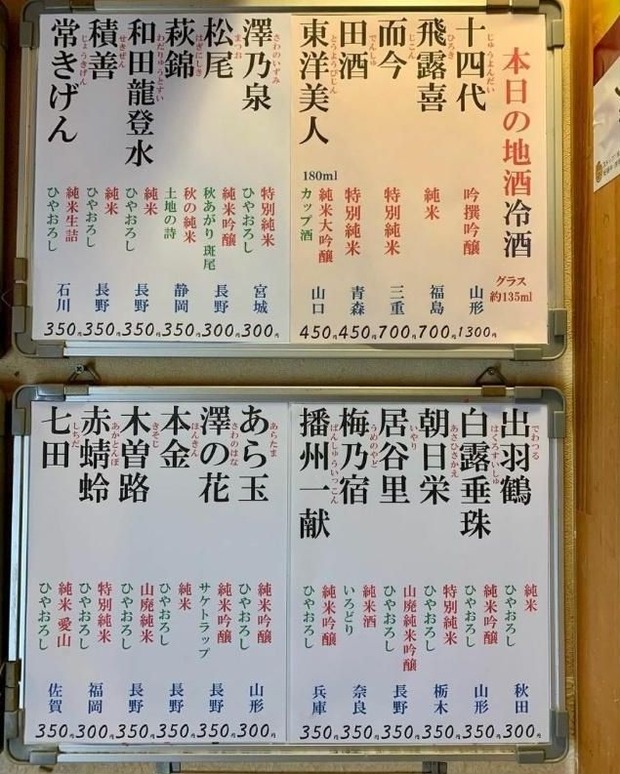 本日の地酒冷酒
グラス
約135ml
十四代
じゅうよんだい
吟撰吟醸
山形
1300円
飛露喜
ひろき
純米
福島
700円
而今
じこん
特別純米
三重
700円
田酒
でんしゅ
特別純米
青森
450円
東洋美人
とうようびじん
180ml
純米大吟醸
カップ酒
山口
450円
澤乃泉
さわのいずみ
特別純米
ひやおろし
宮城
300円
松尾
まつお
純米吟醸
秋あがり斑尾
長野
300円
萩錦
はぎにしき
秋の純米
土地の詩
静岡
350円
和田龍登水
わだりゅうとすい
純米
ひやおろし
長野
350円
積善
せきぜん
純米
ひやおろし
長野
350円
常きげん
じょうきげん
純米生詰
ひやおろし
石川
350円
出羽鶴
でわつる
純米
ひやおろし
秋田
300円
白露垂珠
はくろすいしゅ
純米吟醸
ひやおろし
山形
350円
朝日栄
あさひさかえ
特別純米
ひやおろし
栃木
350円
居谷里
いやり
山廃純米吟醸
ひやおろし
長野
350円
梅乃宿
うめのやど
純米酒
いろどり
奈良
350円
播州一献
ばんしゅういっこん
純米吟醸
ひやおろし
兵庫
350円
あら玉
あらたま
純米吟醸
ひやおろし
山形
300円
澤の花
さわのはな
純米吟醸
サケトラップ
長野
350円
本金
ほんきん
純米
ひやおろし
長野
350円
木曽路
きそじ
山廃純米
ひやおろし
長野
350円
赤蜻蛉
あかとんぼ
特別純米
ひやおろし
福岡
300円
七田
しちだ
純米 愛山
ひやおろし
佐賀
350円